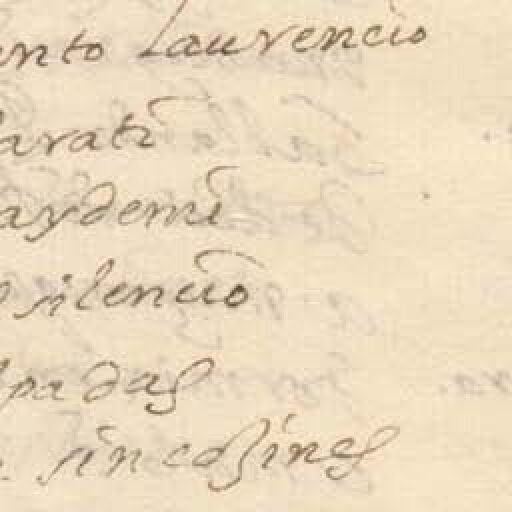 ento Laurencio
arati
aydemi
silencio
padas
sin cozines